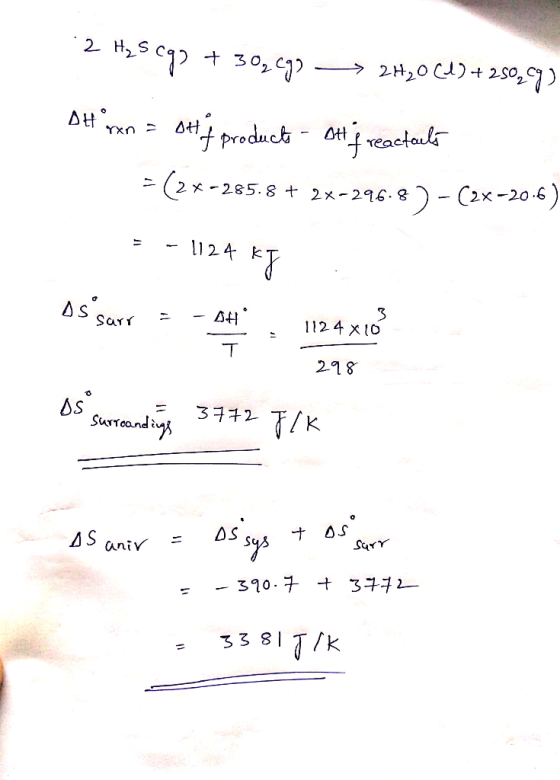 2 H₂S(g) + 3O₂(g) ⟶ 2H₂O(l) + 2SO₂(g)
ΔH°rxn = ΔH°f products - ΔH°f reactants
= (2x-285.8 + 2x-296.8) - (2x-20.6)
= - 1124 kJ
ΔS°surr = - ΔH° / T = 1124x10³ / 298
ΔS°surroundings = 3772 J/K
ΔSuniv = ΔS°sys + ΔS°surr
= - 390.7 + 3772
= 3381 J/K